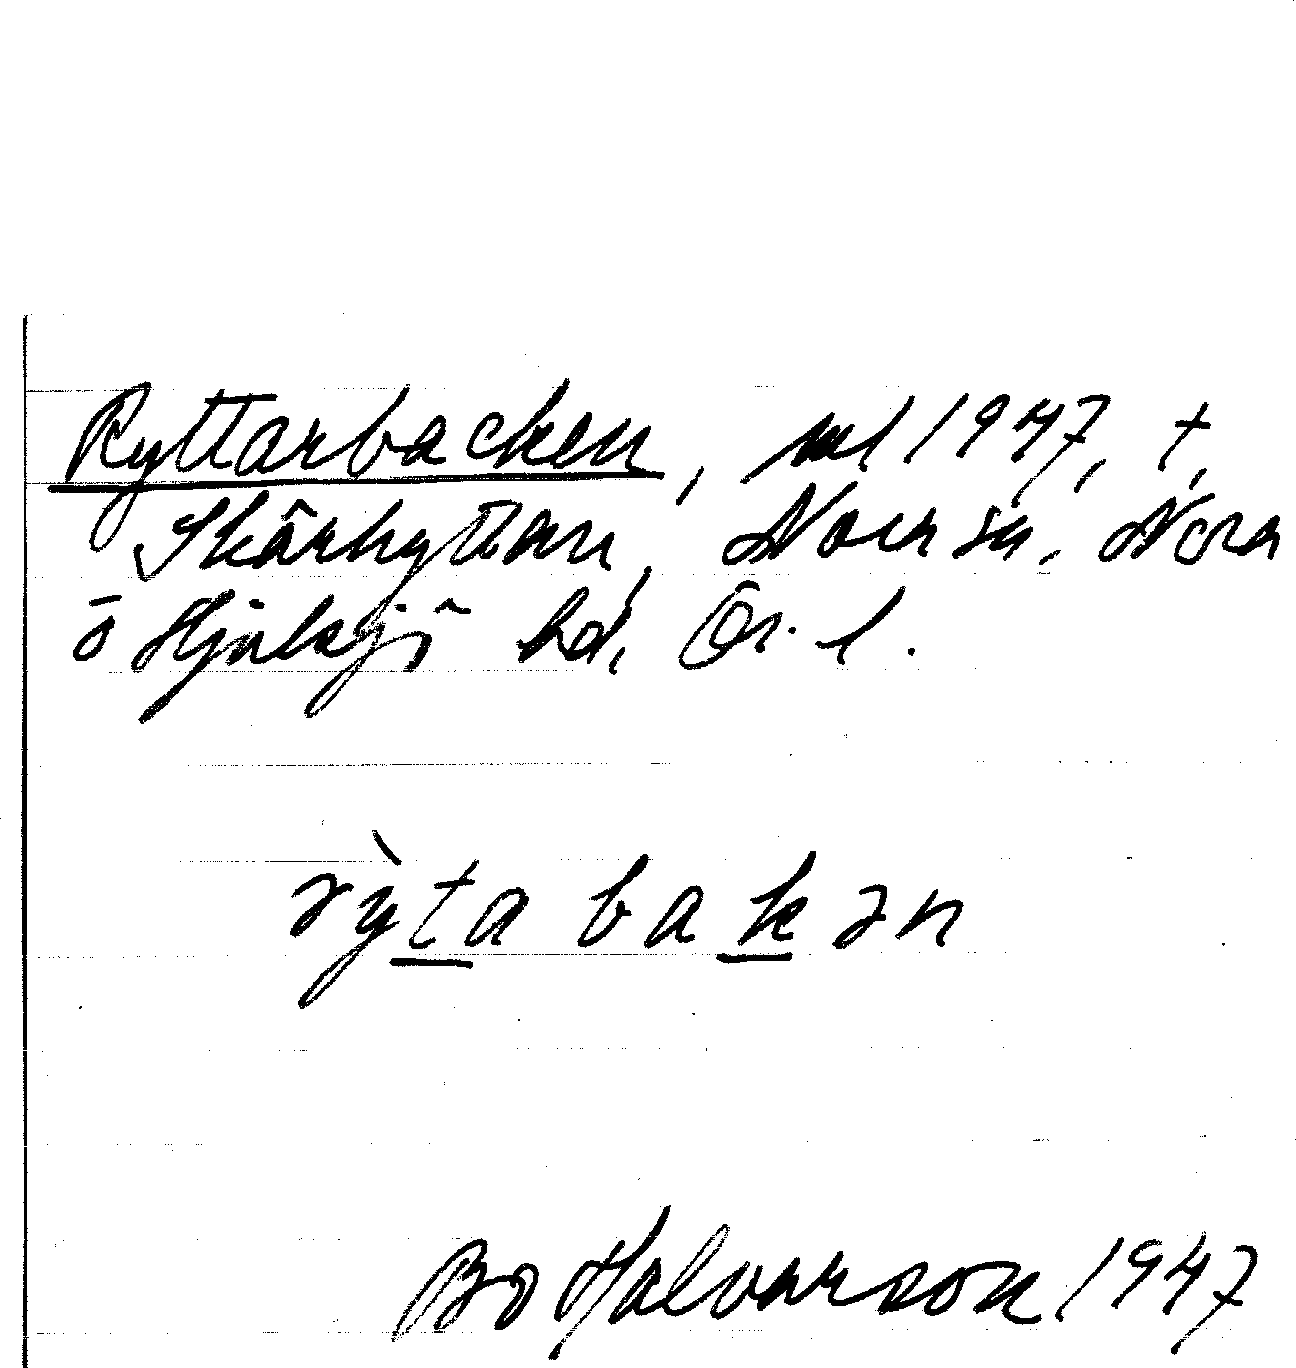 Ryttarbacken, ml 1947, t,
Skärhyttan, Nora sn, Nora
o Hjulsjö hd, Ör. l.
rỳtabakən
Bo Halvarson 1947